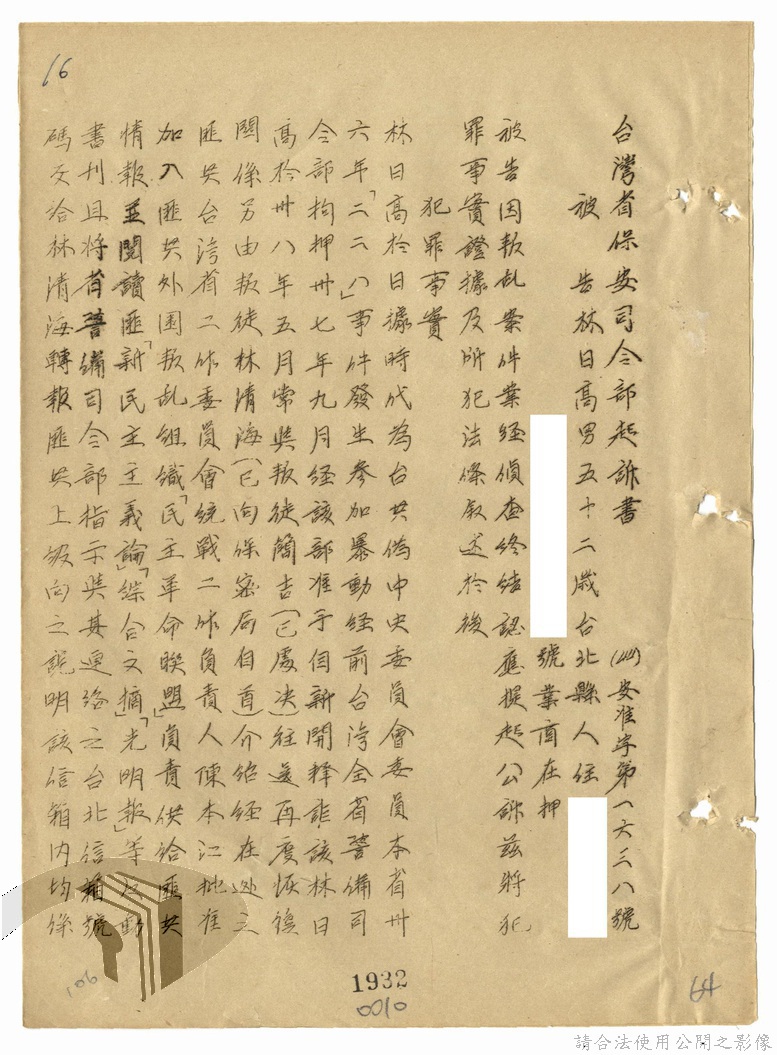 16
台灣省保安司令部起訴書
(44)安准字第一六三八號
被告林日高男五十二歲台北縣人住
號業商在押
被告因叛乱案件業經偵查終結認應提起公訴茲將犯
罪事實證據及所犯法條敘述於後
犯罪事實
林日高於日據時代為台共偽中央委員會委員本省卅
六年「二二八」事件發生參加暴動經前台灣全省警備司
令部拘押卅七年九月經該部准予自新開釋詎該林日
高於卅八年五月常與叛徒簡吉(已處決)往還再度恢復
關係另由叛徒林清海(已向保密局自首)介紹經在逃之
匪共台灣省工作委員會統戰工作負責人陳本江批准
加入匪共外圍叛乱組織「民主革命聯盟」負責供給匪共
情報並閱讀匪「新民主主義論」「綜合文摘」「光明報」等反動
書刊且將省警備司令部指示與其連絡之台北信箱號
碼交給林清海轉報匪共上級向之說明該信箱內均係
106
1932
0010
64
請合法使用公開之影像